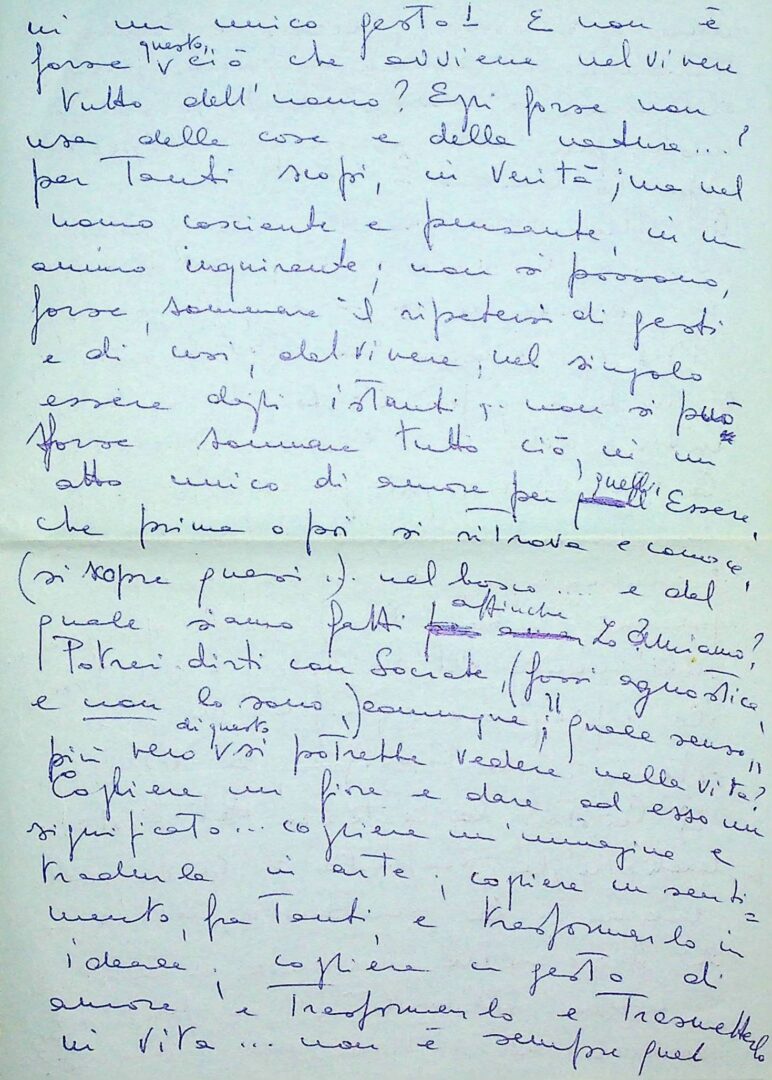 in un unico gesto! E non è
forse questo, ciò che avviene nel vivere
tutto dell'uomo? Egli forse non
usa delle cose e della natura...?
per Tanti scopi, in Verità; ma nel
uomo cosciente e pensante, in un
animo inquirente; non si possono,
forse, sommare il ripetersi di gesti
e di usi, del vivere, nel singolo
essere degli istanti; non si può
forse sommare tutto ciò, in un
atto unico di amore per quell'Essere,
che prima o poi si ritrova e conosce,
(si scopre quasi..). nel bosco... e del
quale siamo fatti affinché Lo Amiamo?
Potrei dirti con Socrate, (fossi agnostica,
e non lo sono,) comunque; "quale senso"
più vero di questo si potrebbe vedere nella vita?
Cogliere un fiore e dare ad esso un
significato... cogliere un'immagine e
tradurla in arte; cogliere un senti=
mento, fra Tanti, e trasformarlo in
ideale; cogliere un gesto di
amore e Trasformarlo e Trasmetterlo
in vita... non è sempre quel